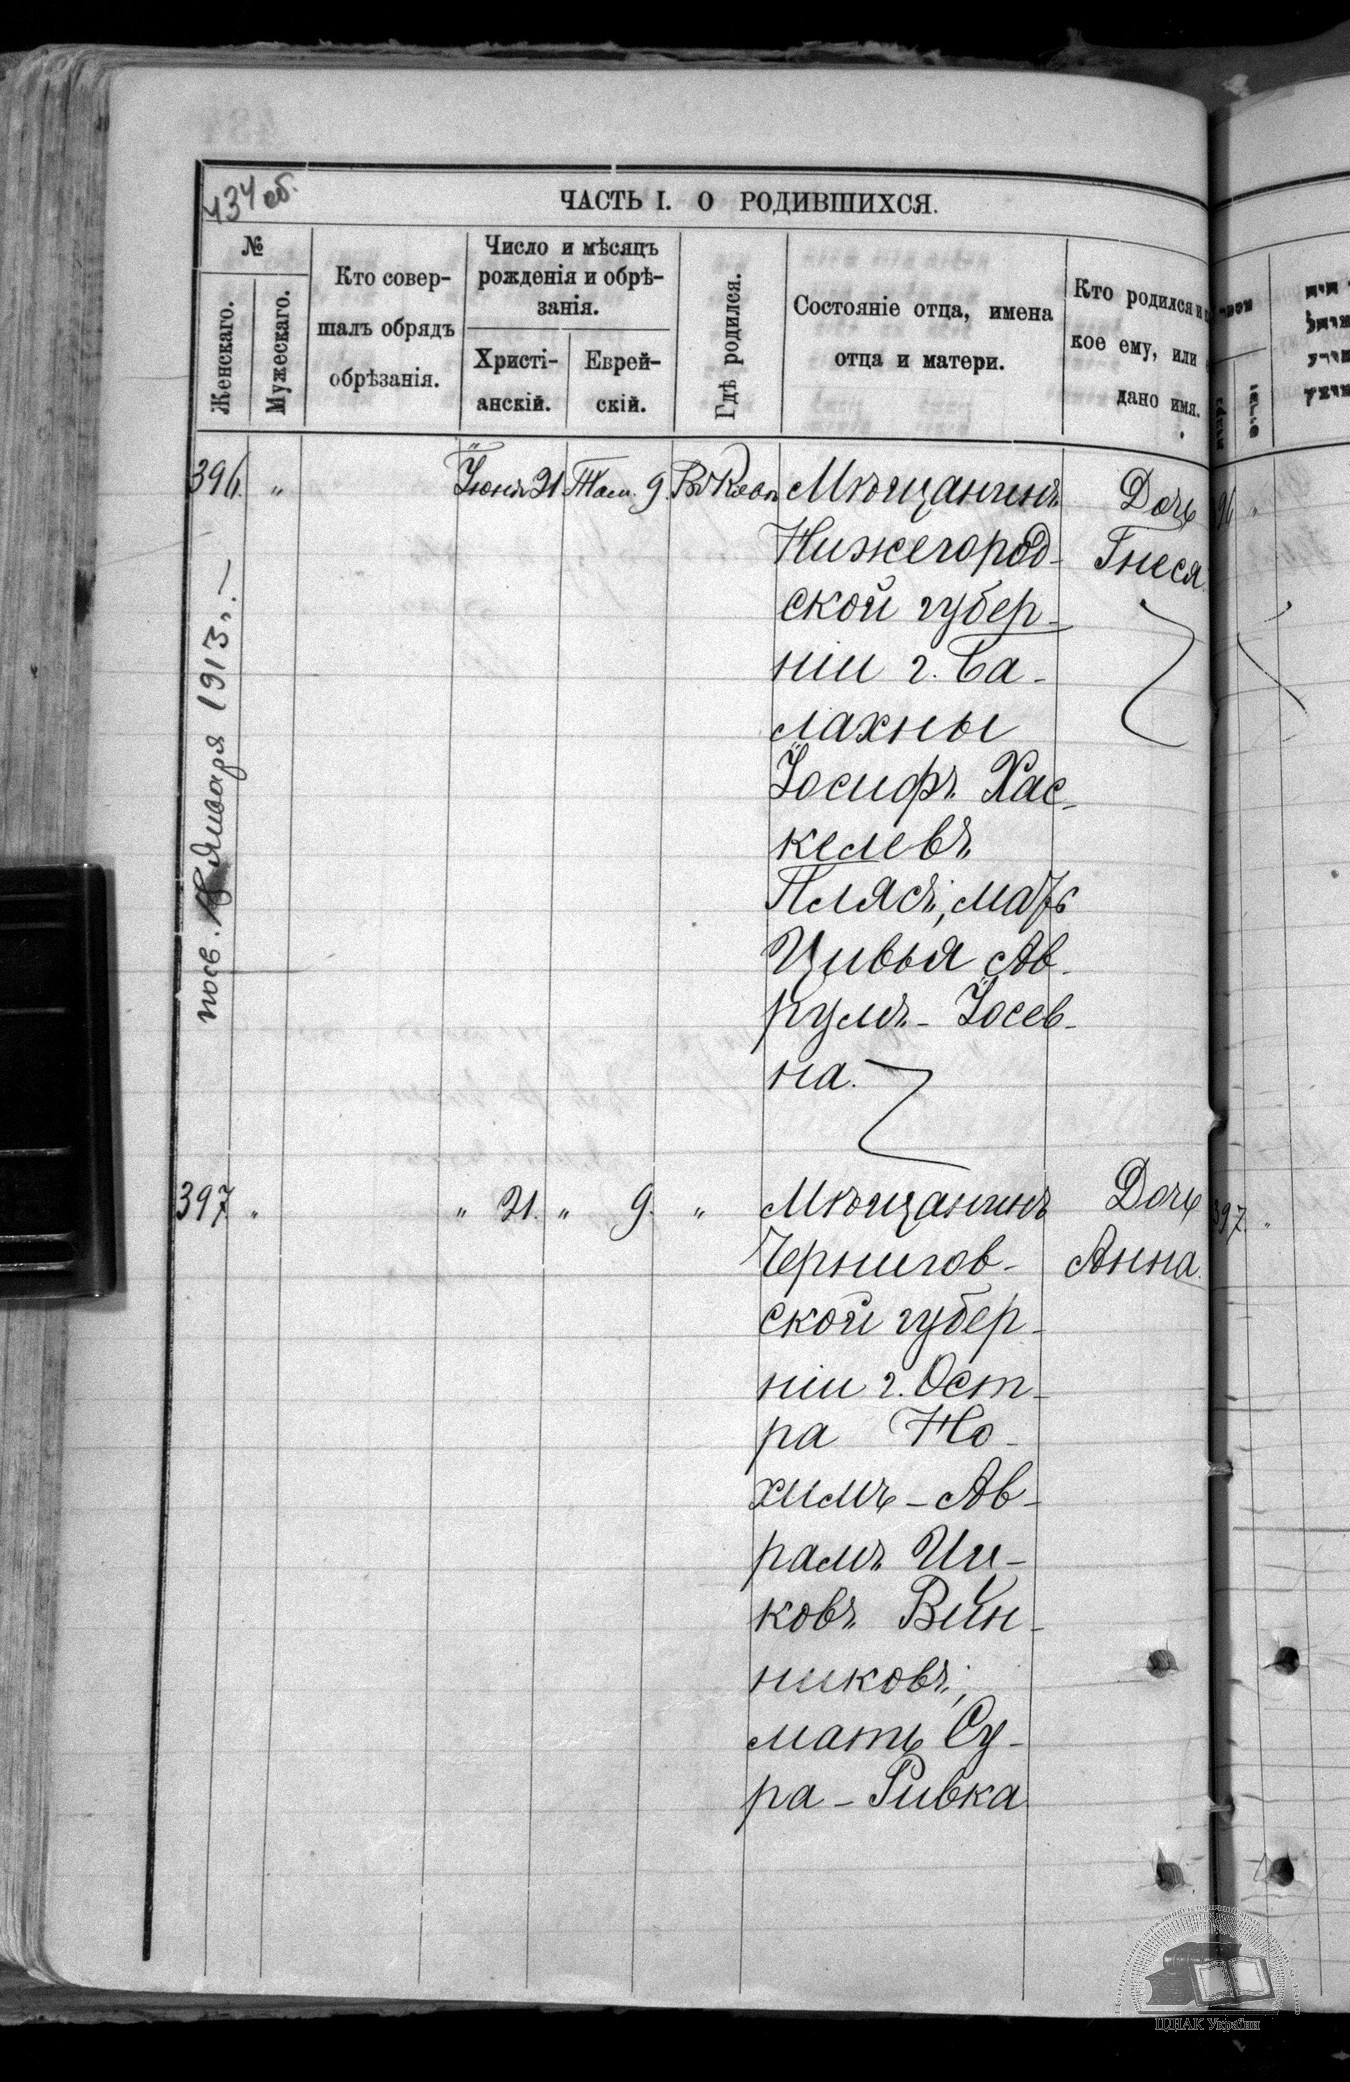 434 об.
ЧАСТЬ I. О РОДИВШИХСЯ.
№
Женскаго.
Мужескаго.
Кто совер-
шалъ обрядъ
обрѣзанія.
Число и мѣсяцъ
рожденія и обрѣ-
занія.
Христі-
анскій.
Еврей-
скій.
Гдѣ родился.
Состояніе отца, имена
отца и матери.
Кто родился и
кое ему, или
дано имя.
396. " Іюня 21. Там. 9. Въ Кіевѣ
Мѣщанинъ
Нижегород-
ской губер-
ніи г. Ба-
лахны
Іосифъ Хас-
келевъ
Плясъ, мать
Цивья Ав-
румъ-Іосев-
на.
Дочь
Гнеся
посв. Января 1913.
397. " " 21. " 9. "
Мѣщанинъ
Чернигов-
ской губер-
ніи г. Ост-
ра Но-
химъ-Ав-
рамъ Иц-
ковъ Вин-
никовъ,
мать Су-
ра-Ривка
Дочь
Анна.
96 "
397. "
ЦДІАК України